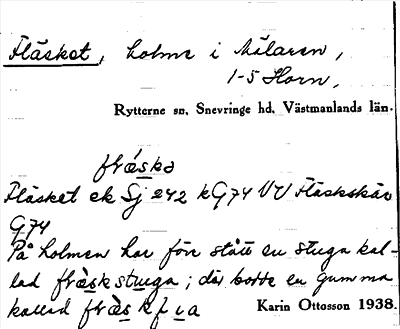 Fläsket, holme i Mälaren,
1-5 Horn,
Rytterne sn, Snevringe hd, Västmanlands län.
fråskə
Fläsket ek Sj 242 kG74 VV Fläskskär
G74
På holmen har förr stått en stuga kal-
lad fräskstuga; där bodde en gumma
kallad fräskfia Karin Ottosson 1938.